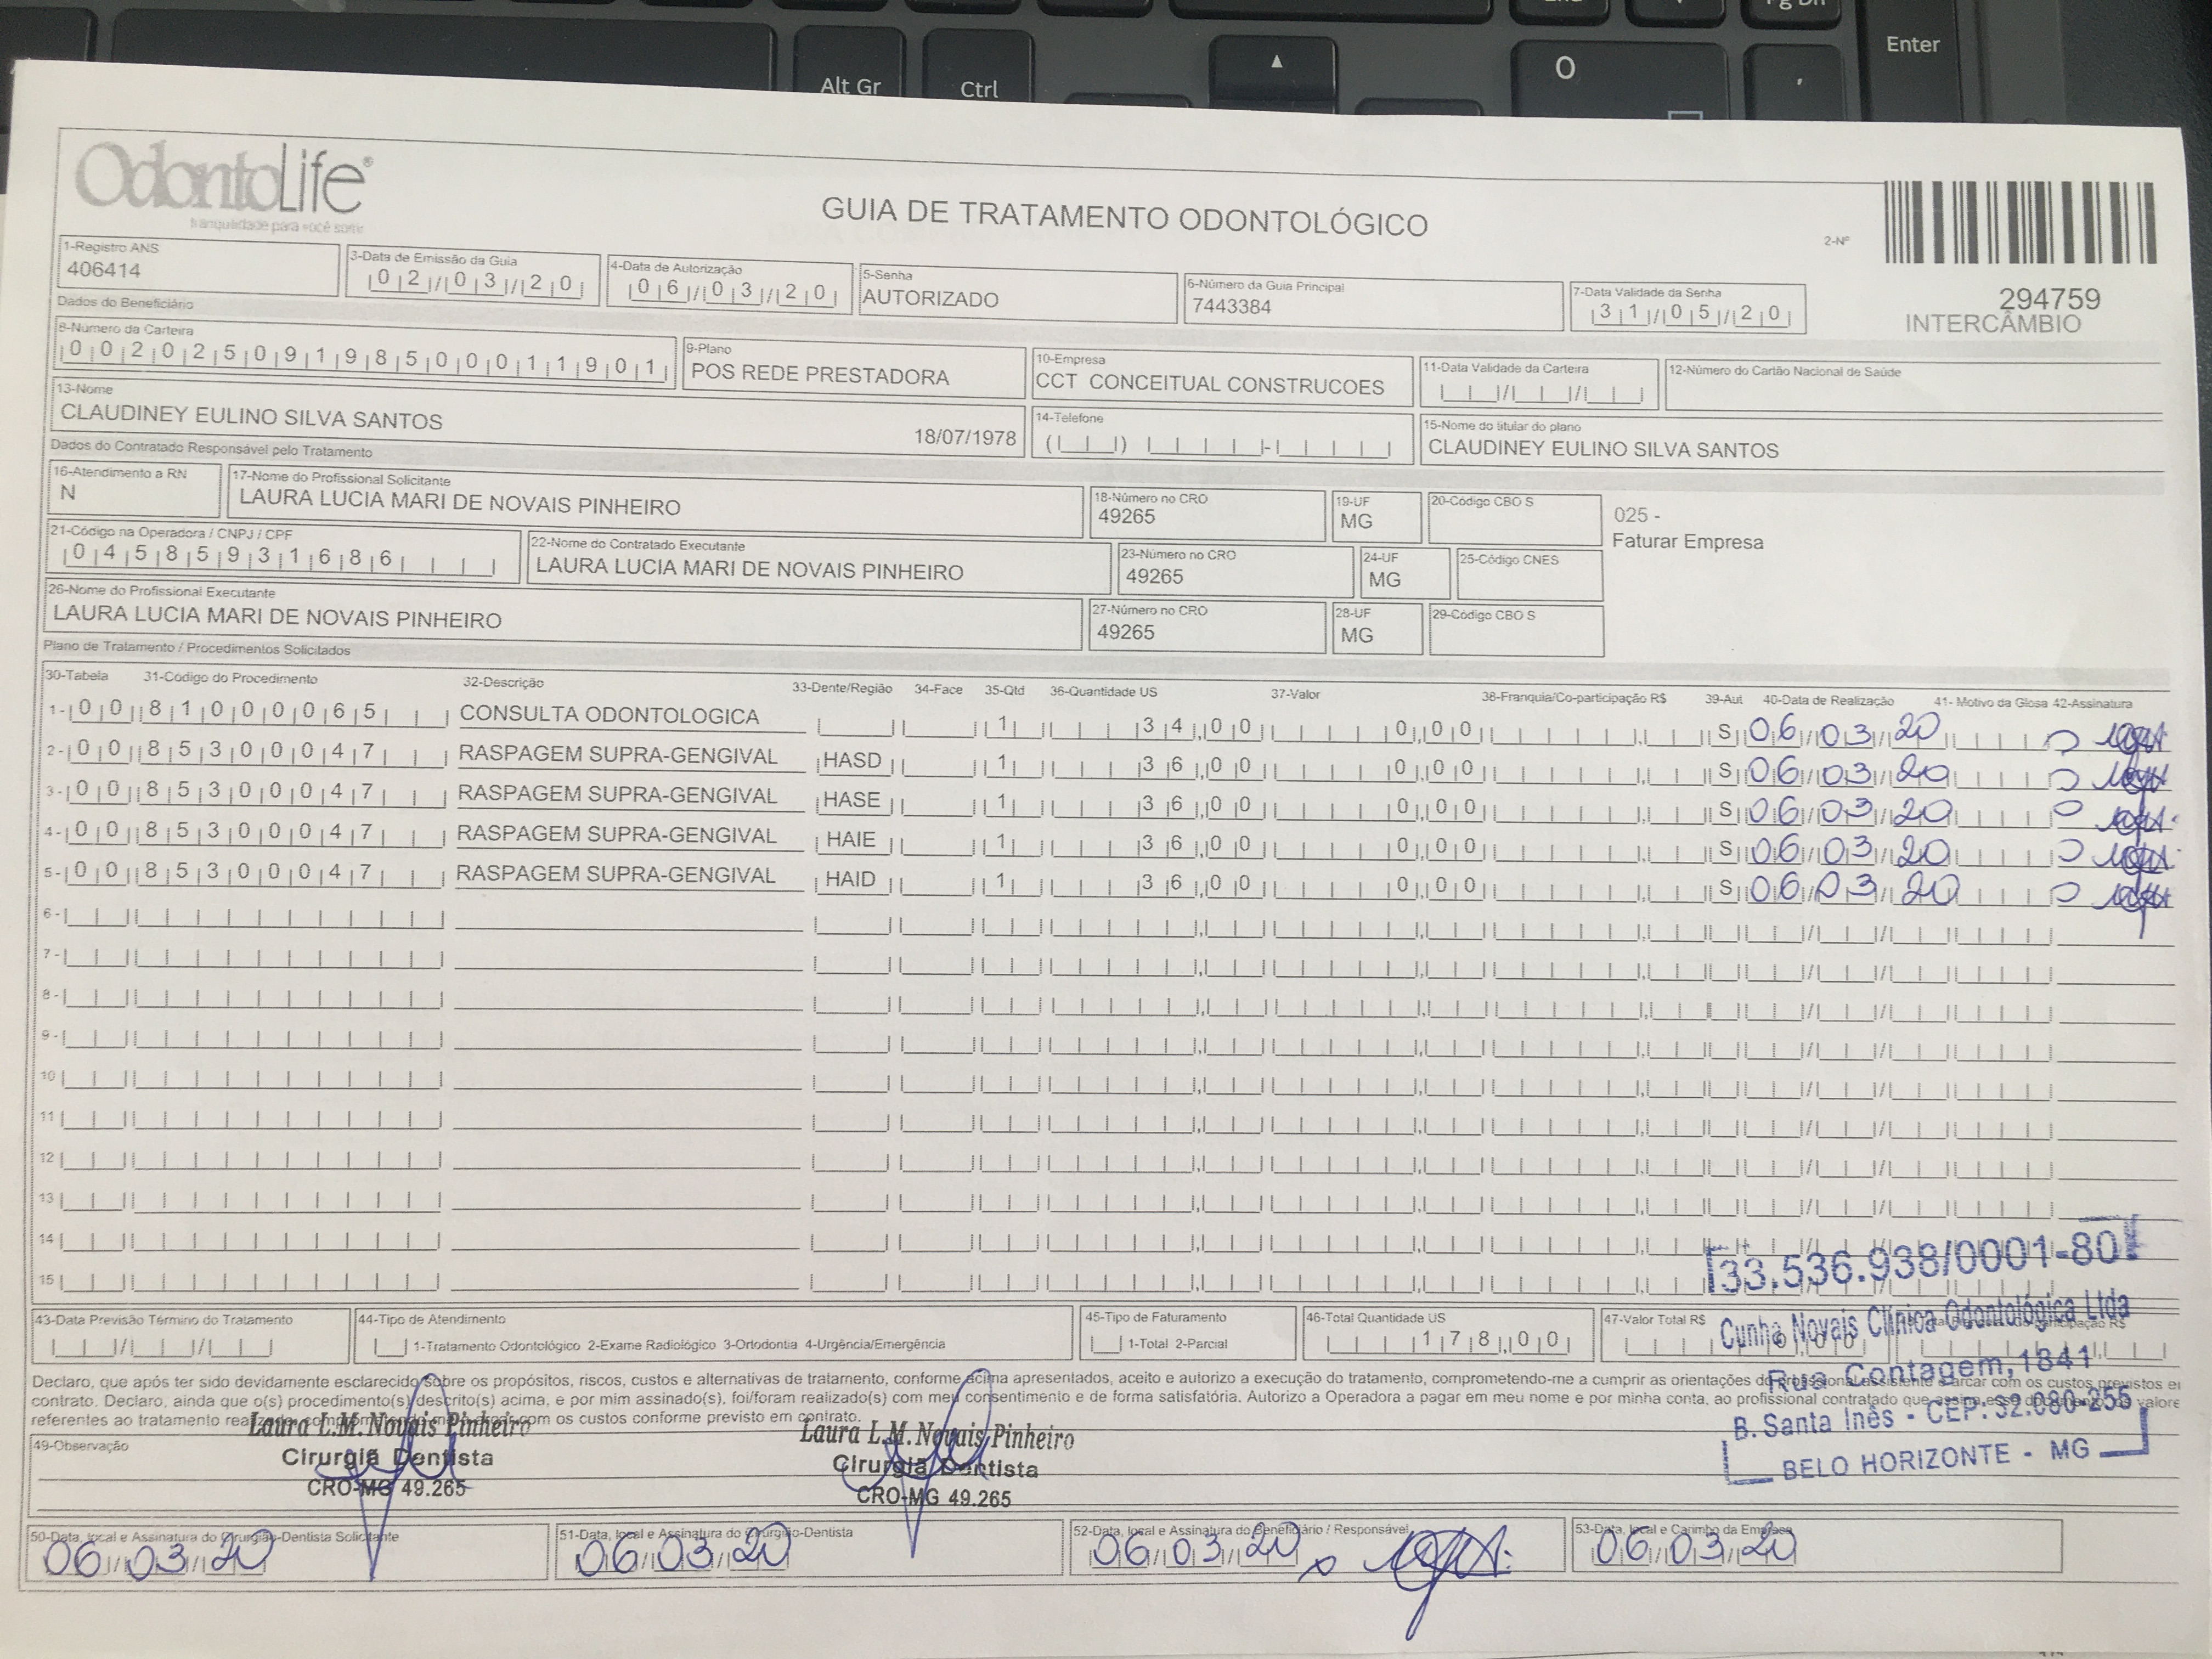 Enter
Alt Gr
Ctrl
0
,
OdontoLife®
tranquilidade para você sorrir
GUIA DE TRATAMENTO ODONTOLÓGICO
2-Nº
294759
INTERCÂMBIO
1-Registro ANS
406414
3-Data de Emissão da Guia
02/03/20
4-Data de Autorização
06/03/20
5-Senha
AUTORIZADO
6-Número da Guia Principal
7443384
7-Data Validade da Senha
31/05/20
Dados do Beneficiário
8-Número da Carteira
00202509198500011901
9-Plano
POS REDE PRESTADORA
10-Empresa
CCT CONCEITUAL CONSTRUCOES
11-Data Validade da Carteira
12-Número do Cartão Nacional de Saúde
13-Nome
CLAUDINEY EULINO SILVA SANTOS 18/07/1978
14-Telefone
15-Nome do titular do plano
CLAUDINEY EULINO SILVA SANTOS
Dados do Contratado Responsável pelo Tratamento
16-Atendimento a RN
N
17-Nome do Profissional Solicitante
LAURA LUCIA MARI DE NOVAIS PINHEIRO
18-Número no CRO
49265
19-UF
MG
20-Código CBO S
025 -
Faturar Empresa
21-Código na Operadora / CNPJ / CPF
04585931686
22-Nome do Contratado Executante
LAURA LUCIA MARI DE NOVAIS PINHEIRO
23-Número no CRO
49265
24-UF
MG
25-Código CNES
26-Nome do Profissional Executante
LAURA LUCIA MARI DE NOVAIS PINHEIRO
27-Número no CRO
49265
28-UF
MG
29-Código CBO S
Plano de Tratamento / Procedimentos Solicitados
30-Tabela 31-Código do Procedimento 32-Descrição 33-Dente/Região 34-Face 35-Qtd 36-Quantidade US 37-Valor 38-Franquia/Co-participação R$ 39-Aut 40-Data de Realização 41- Motivo da Glosa 42-Assinatura
1- 00 81000065 CONSULTA ODONTOLOGICA 1 34,00 0,00 S 06/03/20
2- 00 85300047 RASPAGEM SUPRA-GENGIVAL HASD 1 36,00 0,00 S 06/03/20
3- 00 85300047 RASPAGEM SUPRA-GENGIVAL HASE 1 36,00 0,00 S 06/03/20
4- 00 85300047 RASPAGEM SUPRA-GENGIVAL HAIE 1 36,00 0,00 S 06/03/20
5- 00 85300047 RASPAGEM SUPRA-GENGIVAL HAID 1 36,00 0,00 S 06/03/20
6-
7-
8-
9-
10
11
12
13
14
15
33.536.938/0001-80
Cunha Novais Clínica Odontológica Ltda
Rua Contagem, 1841
B. Santa Inês - CEP: 32.080-255
BELO HORIZONTE - MG
43-Data Previsão Término do Tratamento
44-Tipo de Atendimento
1-Tratamento Odontológico 2-Exame Radiológico 3-Ortodontia 4-Urgência/Emergência
45-Tipo de Faturamento
1-Total 2-Parcial
46-Total Quantidade US
178,00
47-Valor Total R$
Declaro, que após ter sido devidamente esclarecido sobre os propósitos, riscos, custos e alternativas de tratamento, conforme acima apresentados, aceito e autorizo a execução do tratamento, comprometendo-me a cumprir as orientações do profissional assistente e arcar com os custos previstos em
contrato. Declaro, ainda que o(s) procedimento(s) descrito(s) acima, e por mim assinado(s), foi/foram realizado(s) com meu consentimento e de forma satisfatória. Autorizo a Operadora a pagar em meu nome e por minha conta, ao profissional contratado que assina esse documento, os valore
referentes ao tratamento com os custos conforme previsto em contrato.
49-Observação
Laura L.M. Novais Pinheiro
Cirurgiã Dentista
CRO-MG 49.265
Laura L.M. Novais Pinheiro
Cirurgiã Dentista
CRO-MG 49.265
50-Data, local e Assinatura do Cirurgião-Dentista Solicitante
06/03/20
51-Data, local e Assinatura do Cirurgião-Dentista
06/03/20
52-Data, local e Assinatura do Beneficiário / Responsável
06/03/20 x
53-Data, local e Carimbo da Empresa
06/03/20